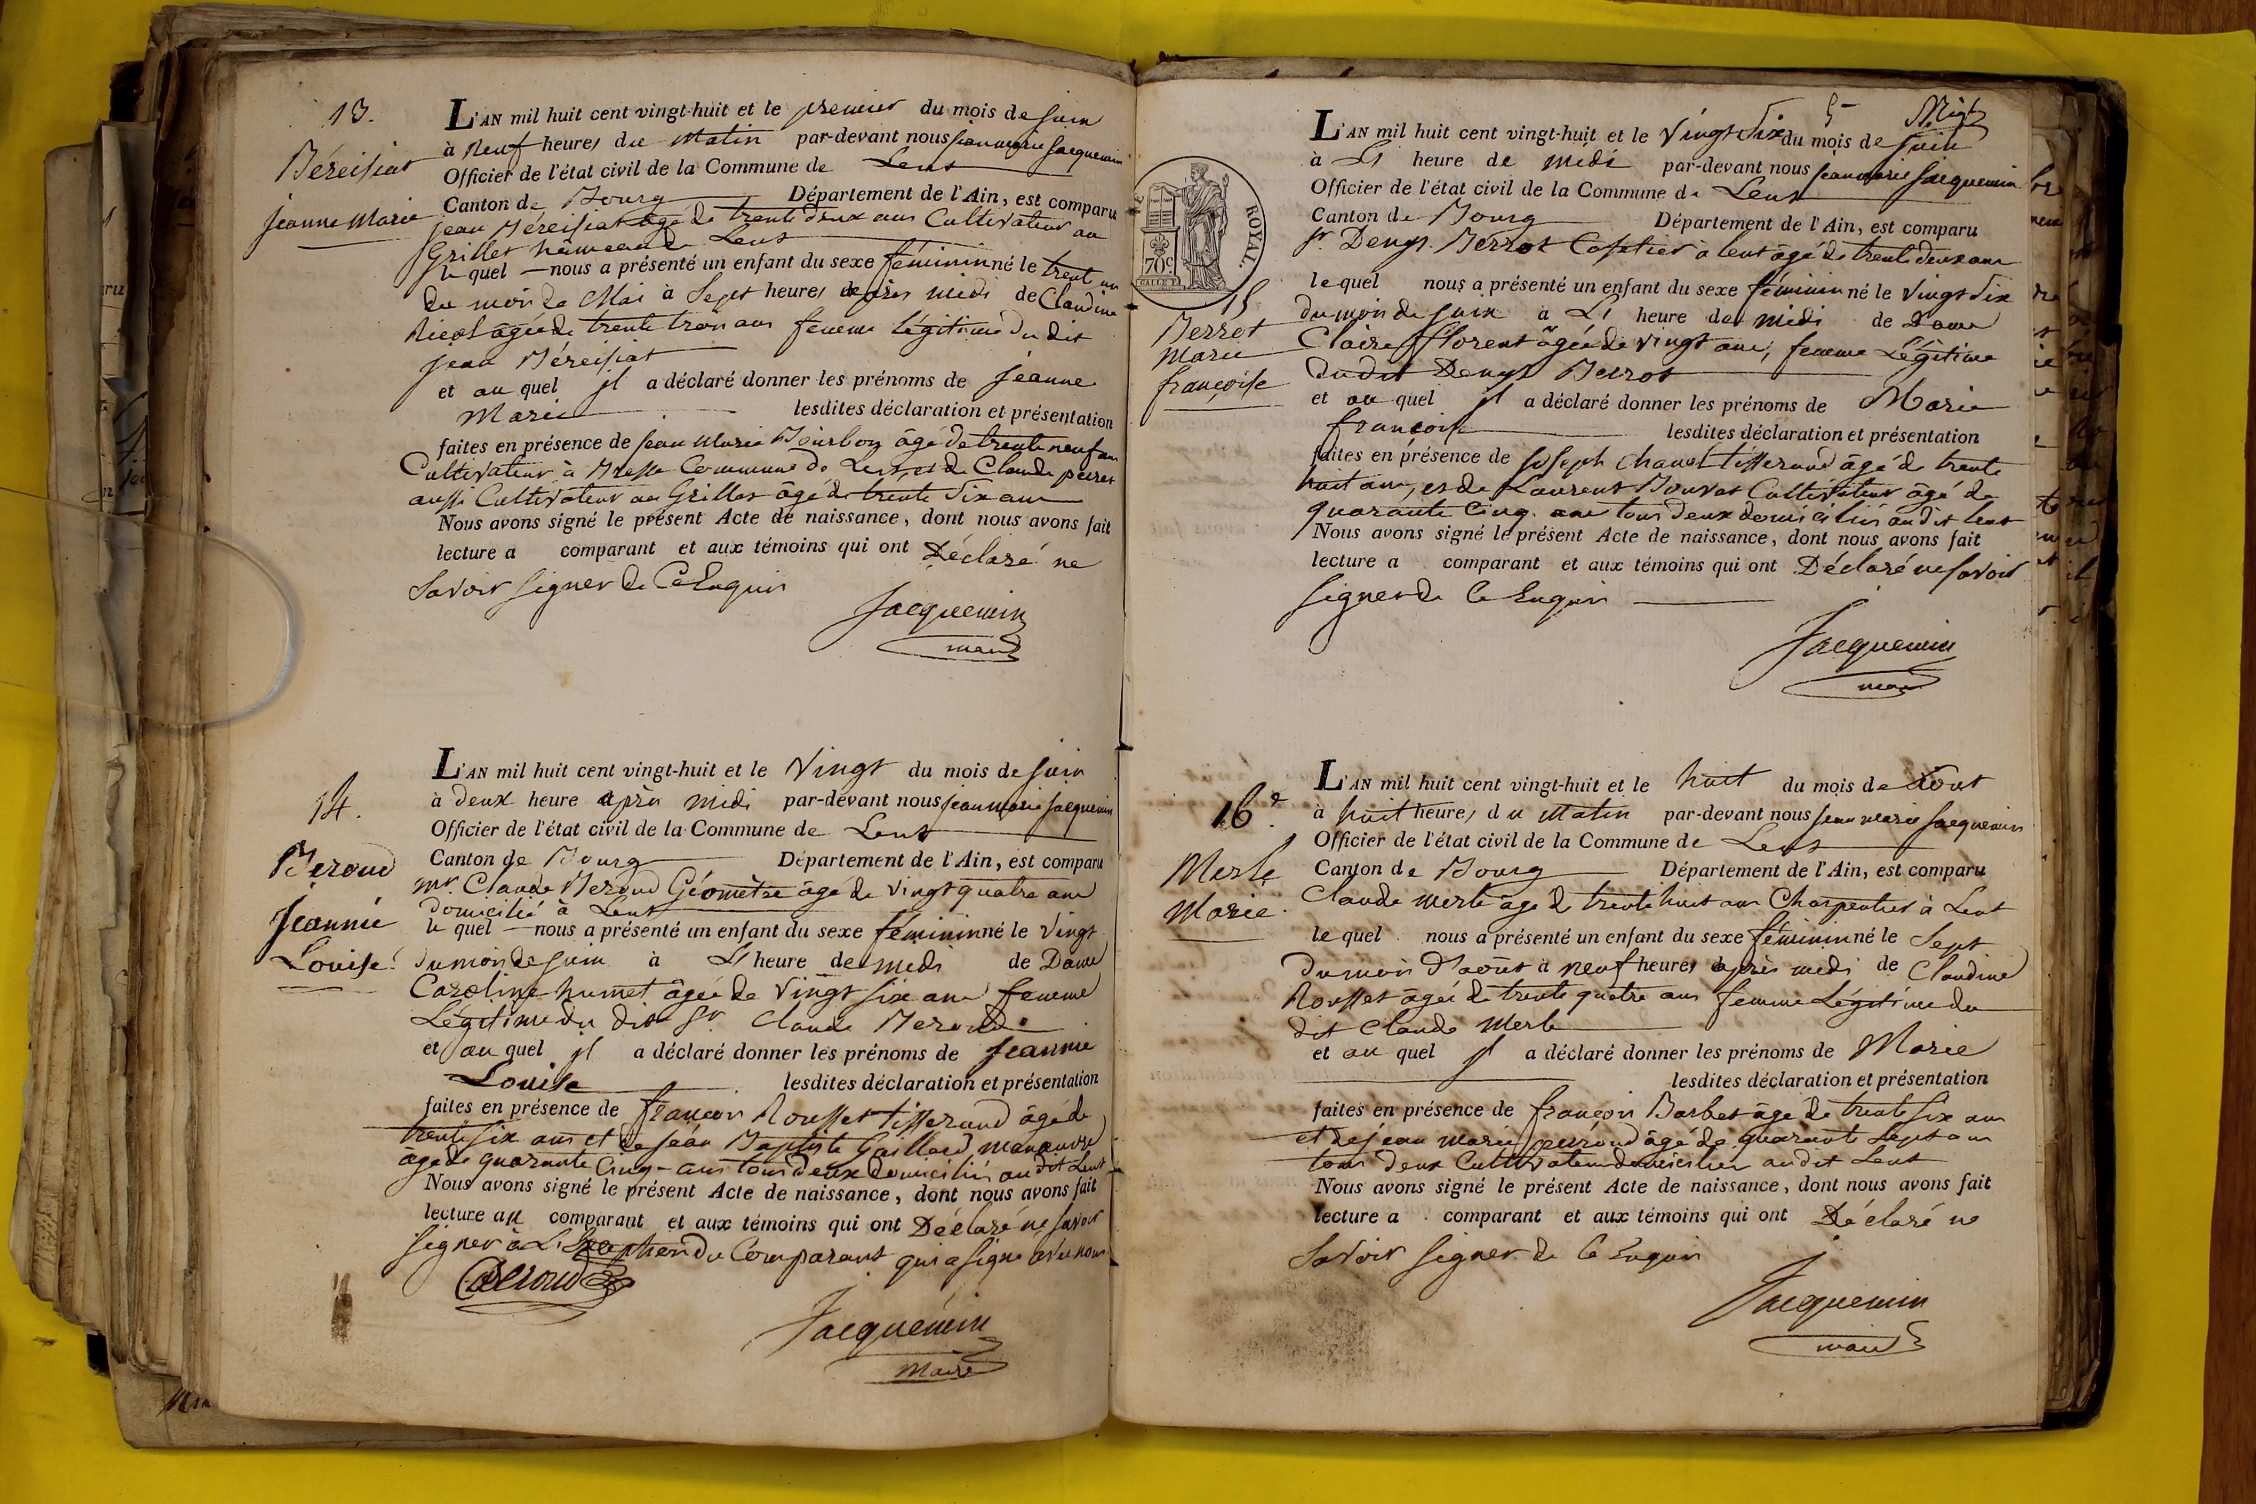 13.
Béreisiat
Jeanne Marie
L'AN mil huit cent vingt-huit et le premier du mois de juin
à neuf heures du matin par-devant nous jean marie jacquemin
Officier de l'état civil de la Commune de Lent
Canton de Bourg Département de l'Ain, est comparu
jean Béreisiat âgé de trente deux ans Cultivateur au
Grillet hameau de Lent
le quel nous a présenté un enfant du sexe féminin né le trent un
du mois de Mai à Sept heures après midi de Claudine
âgée de trente trois ans femme légitime du dit
jean Béreisiat
et au quel jl a déclaré donner les prénoms de jeanne
Marie lesdites déclaration et présentation
faites en présence de jean Marie Bourbon âgé de trente neuf ans
Cultivateur à Commune de Lent et de Claude
aussi Cultivateur au Grillet âgé de trente Six ans
Nous avons signé le présent Acte de naissance, dont nous avons fait
lecture a comparant et aux témoins qui ont Déclaré ne
Savoir signer de Ce Enquis
Jacquemin
maire
14.
Beroud
Jeannie
Louise
L'AN mil huit cent vingt-huit et le Vingt du mois de juin
à deux heure après midi par-devant nous jean marie jacquemin
Officier de l'état civil de la Commune de Lent
Canton de Bourg Département de l'Ain, est comparu
mr. Claude Beroud Géomètre âgé de vingt quatre ans
domicilié à Lent
le quel nous a présenté un enfant du sexe féminin né le Vingt
du mois de juin à L1 heure de midi de Dame
Caroline humet âgée de Vingt six ans femme
Légitime du dit Sr. Claude Beroud
et au quel jl a déclaré donner les prénoms de Jeannie
Louise lesdites déclaration et présentation
faites en présence de françois Rousset tisserand âgé de
trente six ans et de jean Baptiste Gaillard manœuvre
âgé de quarante Cinq ans tous deux domiciliés au dit Lent
Nous avons signé le présent Acte de naissance, dont nous avons fait
lecture au comparant et aux témoins qui ont Déclaré ne savoir
signer à L'Exception du Comparant qui a signé avec nous
CBeroud
Jacquemin
Maire
5
ROYAL.
70c
15
Berrot
Marie
françoise
L'AN mil huit cent vingt-huit et le Vingt Six du mois de juin
à L1 heure de midi par-devant nous jean marie jacquemin
Officier de l'état civil de la Commune de Lent
Canton de Bourg Département de l'Ain, est comparu
Sr. Denys Berrot Cafetier à Lent âgé de trente deux ans
le quel nous a présenté un enfant du sexe féminin né le Vingt Six
du mois de juin à L1 heure de midi de Dame
Claire florent âgée de vingt ans, femme Légitime
du dit Denys Berrot
et au quel jl a déclaré donner les prénoms de Marie
françoise lesdites déclaration et présentation
faites en présence de joseph Chanel tisserand âgé de trente
huit ans, et de Laurent Bouvat Cultivateur âgé de
quarante Cinq ans tous deux domiciliés au dit Lent
Nous avons signé le présent Acte de naissance, dont nous avons fait
lecture a comparant et aux témoins qui ont Déclaré ne savoir
signer de Ce Enquis
Jacquemin
maire
16e
Merle
Marie
L'AN mil huit cent vingt-huit et le huit du mois de Août
à huit heures du Matin par-devant nous jean marie jacquemin
Officier de l'état civil de la Commune de Lent
Canton de Bourg Département de l'Ain, est comparu
Claude Merle âgé de trente huit ans Charpentier à Lent
le quel nous a présenté un enfant du sexe féminin né le Sept
du mois d'août à neuf heures après midi de Claudine
Rousset âgée de trente quatre ans femme Légitime du
dit Claude Merle
et au quel jl a déclaré donner les prénoms de Marie
lesdites déclaration et présentation
faites en présence de françois Barbet âgé de trente six ans
et de jean marie âgé de quarante Sept ans
tous deux Cultivateurs domiciliés au dit Lent
Nous avons signé le présent Acte de naissance, dont nous avons fait
lecture a comparant et aux témoins qui ont Déclaré ne
Savoir signer de Ce Enquis
Jacquemin
maire